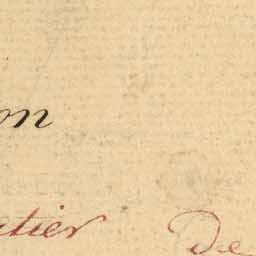 on
utier De